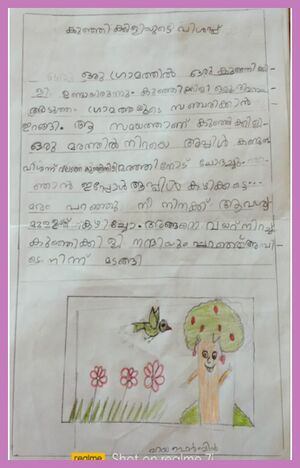 കുഞ്ഞിക്കിളിയുടെ വിശപ്പ്
ഒരു ഗ്രാമത്തിൽ ഒരു കുഞ്ഞിക്കി
ളി ഉണ്ടായിരുന്നു. കുഞ്ഞിക്കിളി ഒരു ദിവസം
അടുത്ത ഗ്രാമത്തിലൂടെ സഞ്ചരിക്കാൻ
ഇറങ്ങി. ആ സമയത്താണ് കുഞ്ഞിക്കിളി
ഒരു മരത്തിൽ നിറയെ ആപ്പിൾ കണ്ടത്
വിശന്ന് വലഞ്ഞ കുഞ്ഞിക്കിളി മരത്തിനോട് ചോദിച്ചു
ഞാൻ ഇപ്പോൾ ആപ്പിൾ കഴിക്കട്ടെ...
മരം പറഞ്ഞു നീ നിനക്ക് ആവശ്യ
മുള്ളത് കഴിച്ചോ. അങ്ങനെ വയറ് നിറച്ച്
കുഞ്ഞിക്കിളി നന്ദിയും പറഞ്ഞ് അവി
ടെ നിന്ന് മടങ്ങി
realme Shot on realme 7i